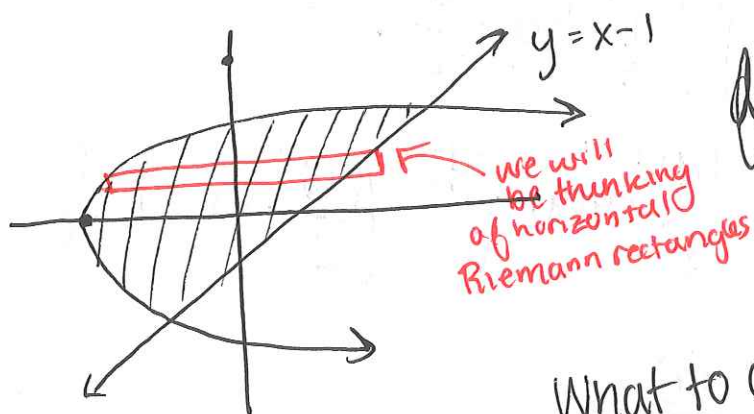 y = x - 1
we will
be thinking
of horizontal
Riemann rectangles
What to